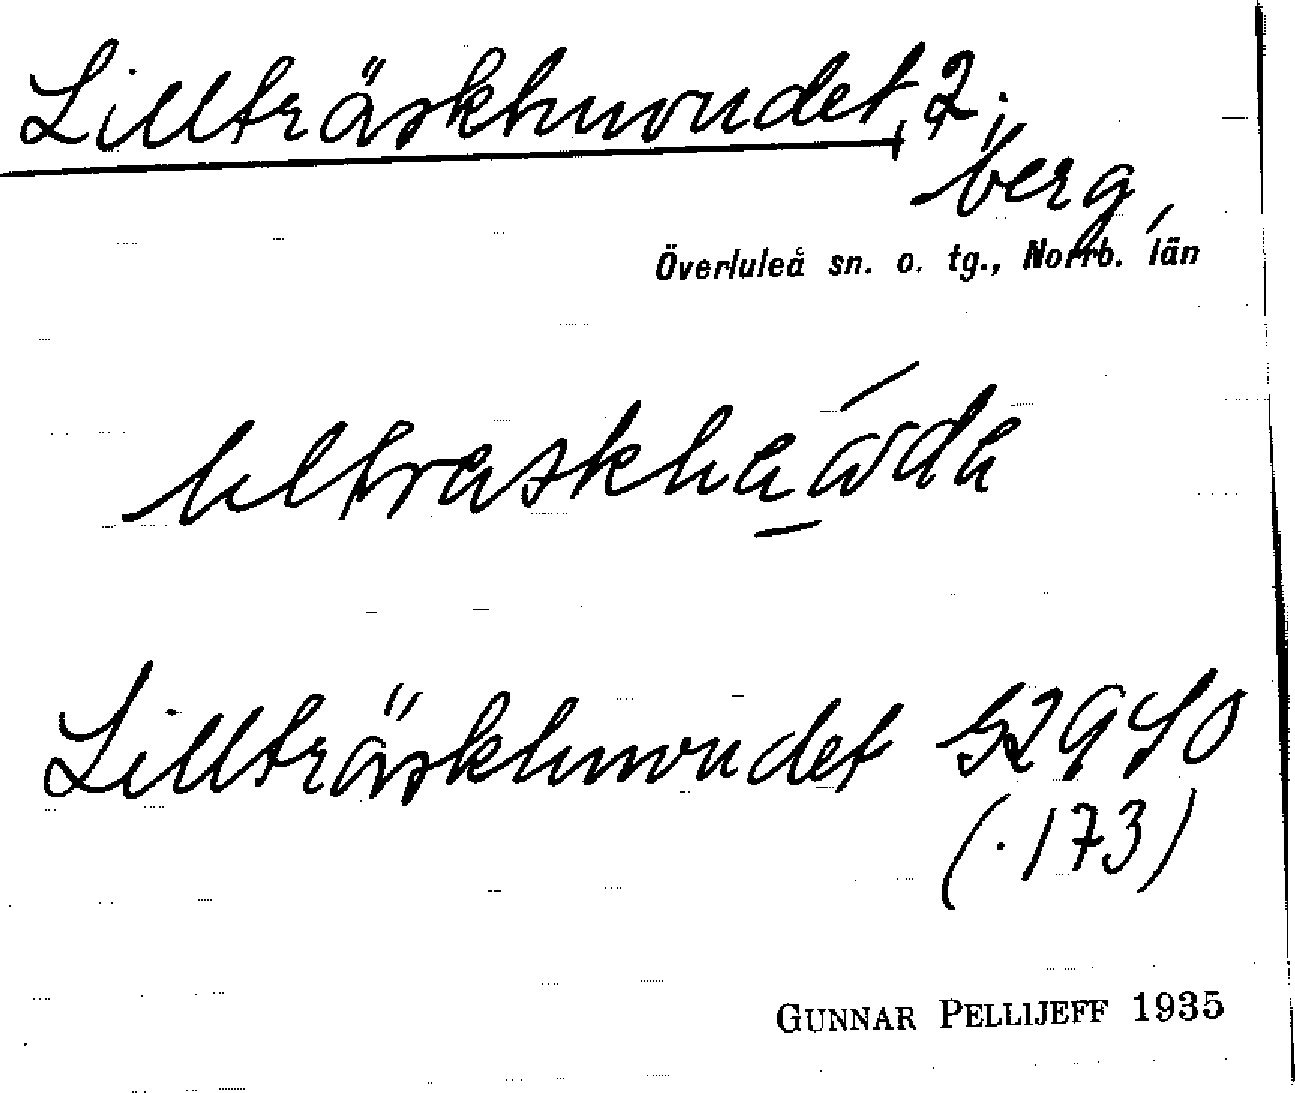 Lillträskhuvudet, 2.
berg,
Överluleå sn. o. tg., Norrb. län
Lillträskhuvudet 52940
(·173)
GUNNAR PELLIJEFF 1935